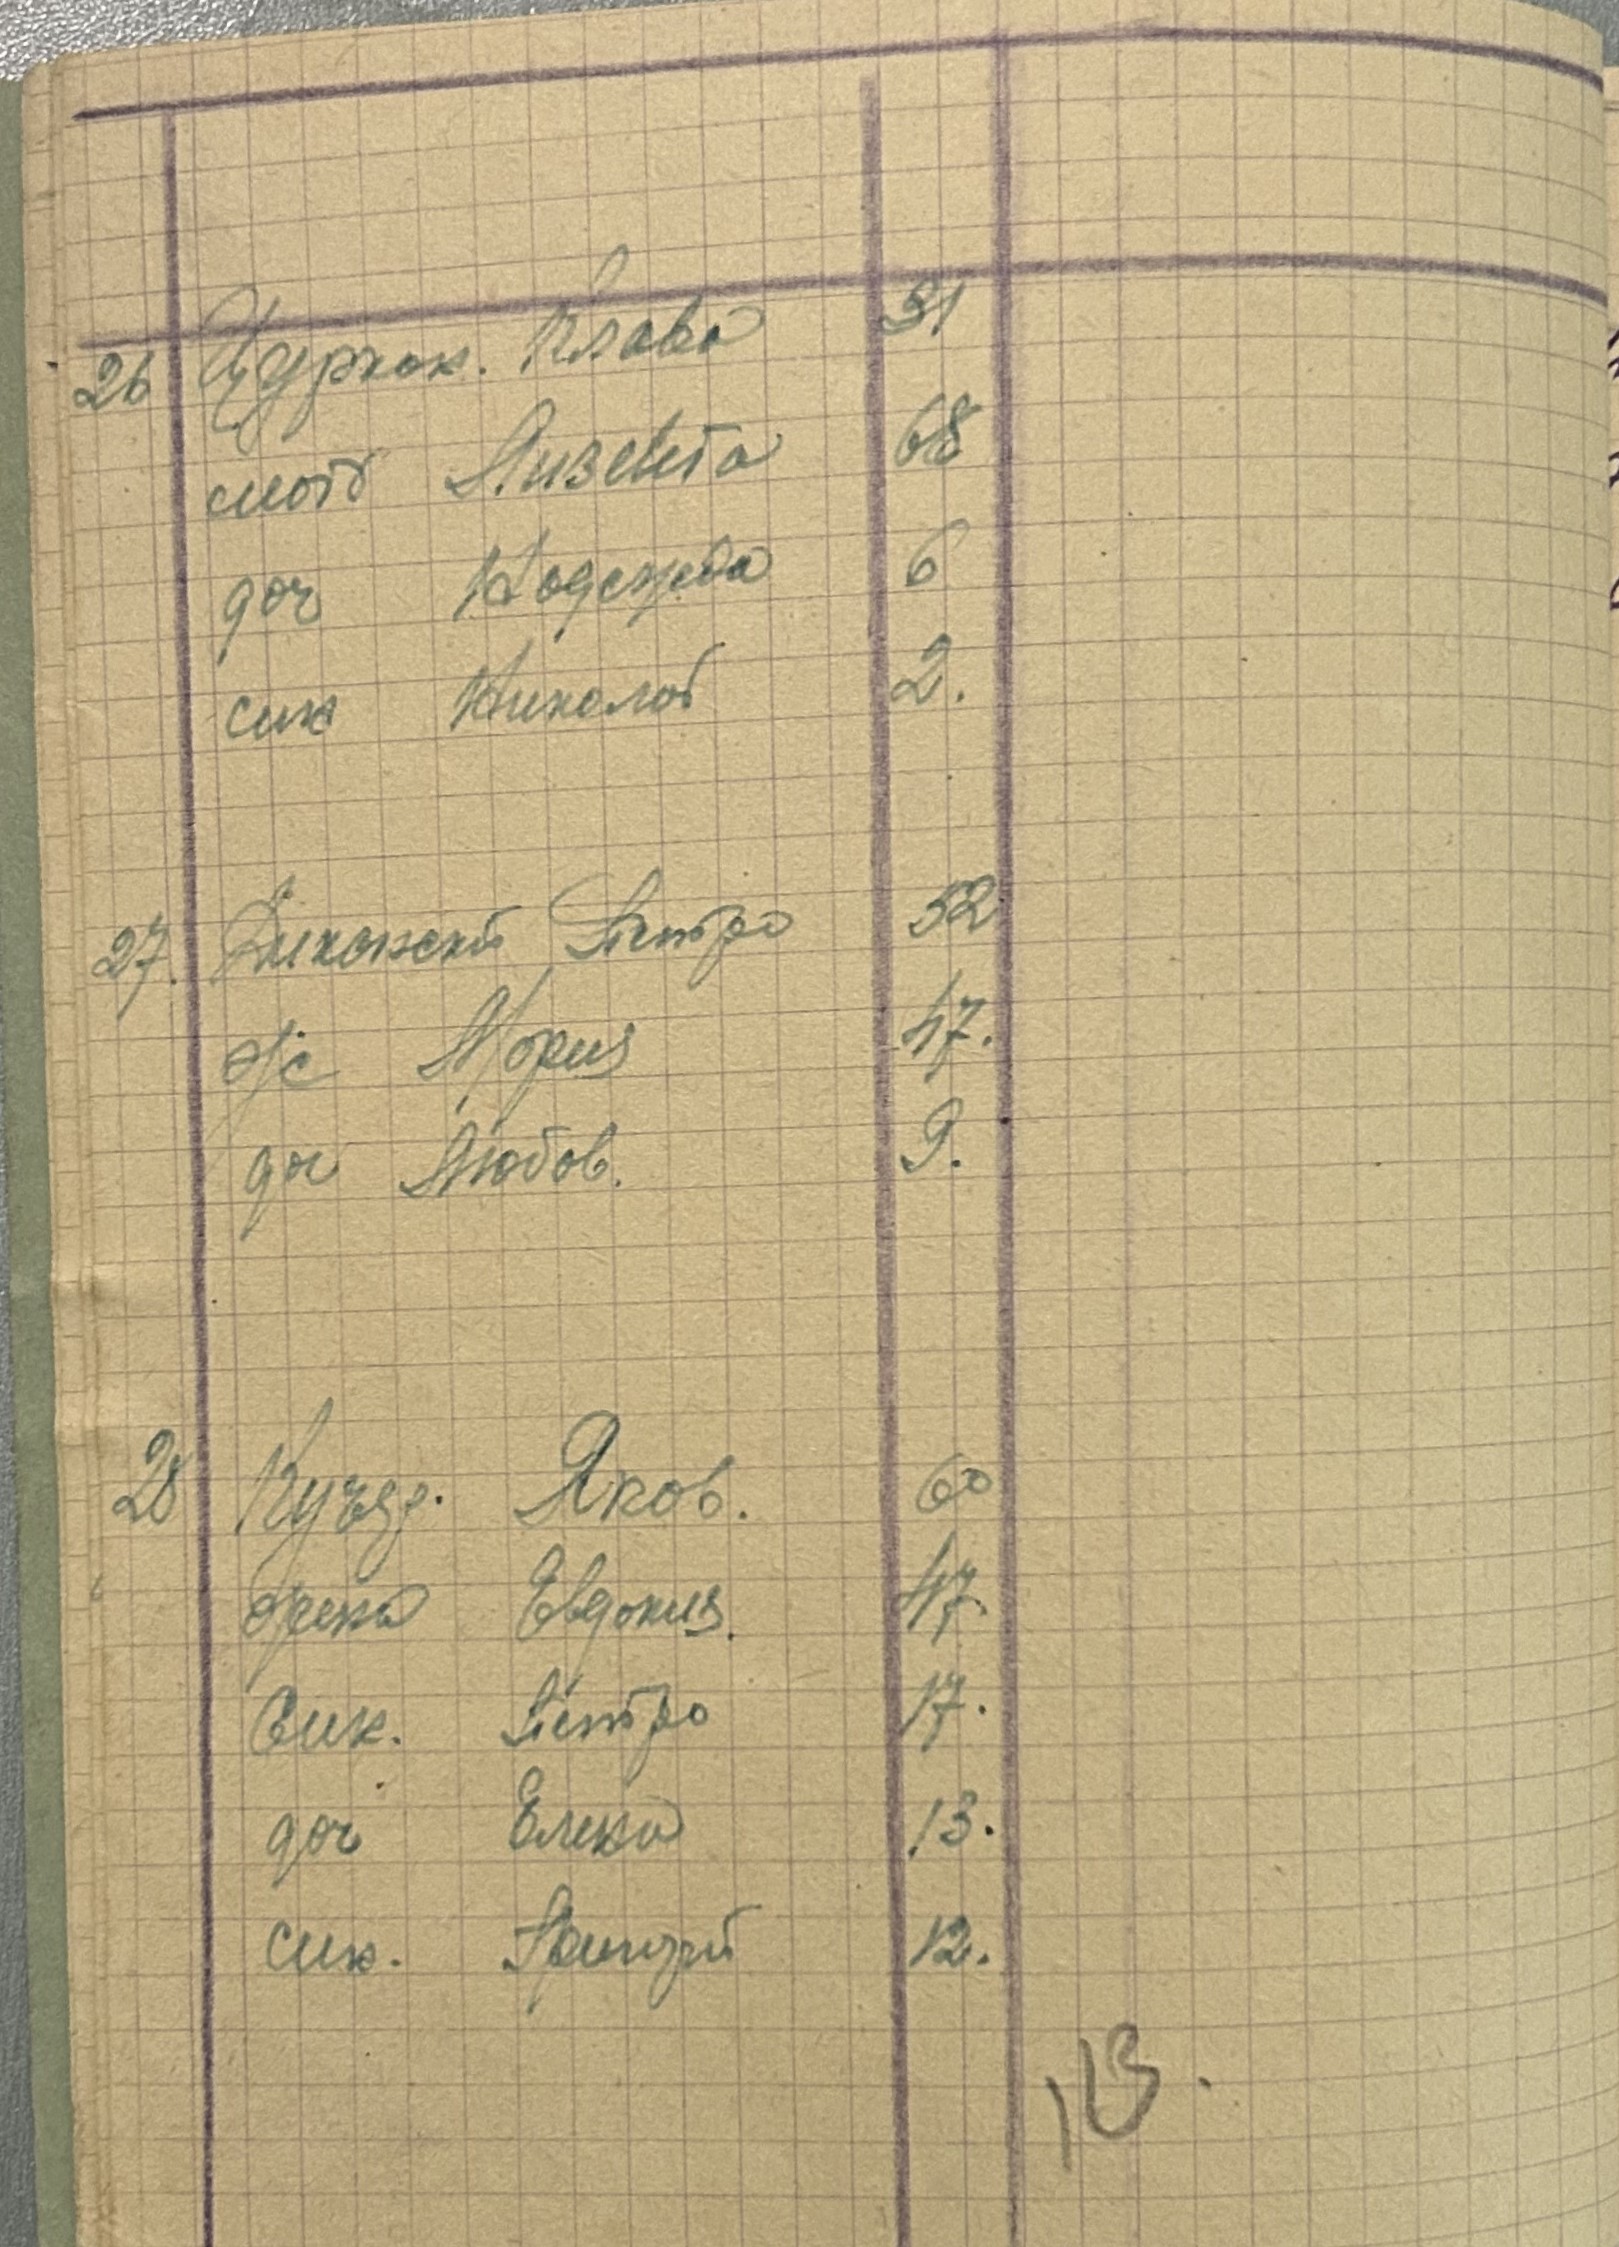 26 Цуркан. Клава 31
мать Лизевета 68
доч Надежда 6
син Николай 2.
27. Диканский Петро 52
ж Мария 47.
доч Любов. 9.
28 Яков. 60
жена Евдокия. 47.
Син. Петро 17.
доч Елена 13.
син. 12.